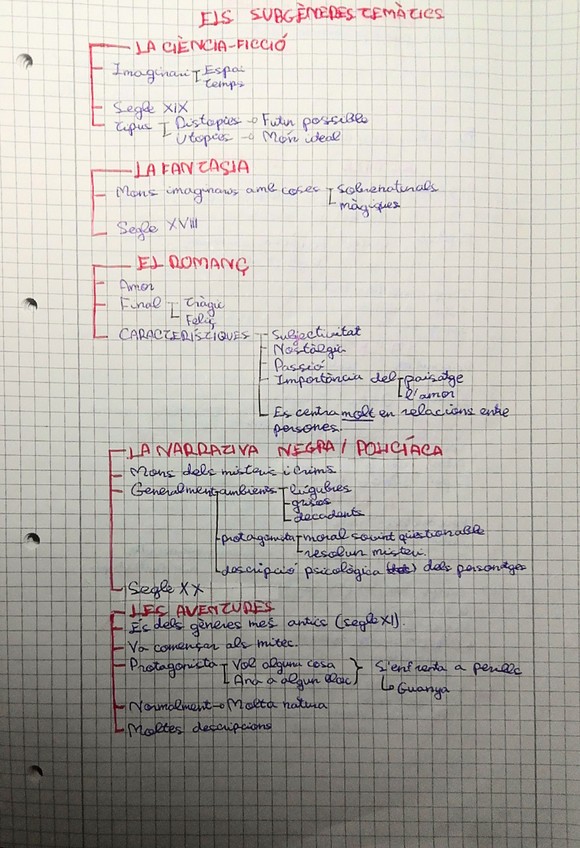 ELS SUBGÈNERES TEMÀTICS
LA CIÈNCIA-FICCIÓ
Imaginari Espai
temps
Segle XIX
tipus Distopies → Futur possible
Utopies → Món ideal
LA FANTASIA
Mons imaginaris amb coses sobrenaturals
màgiques
Segle XVIII
EL ROMANÇ
Amor
Final Tràgic
Feliç
CARACTERÍSTIQUES Subjectivitat
Nostàlgia
Passió
Importància del paisatge
l'amor
Es centra molt en relacions entre
persones.
LA NARRATIVA NEGRA / POLICÍACA
Mons dels misteris i crims
Generalment ambients lúgubres
grisos
decadents
protagonista moral sovint qüestionable
resolun misteri.
descripció psicològica dels personatges
Segle XX
LES AVENTURES
És dels gèneres més antics (segle XI).
Va començar als mites.
Protagonista Vol alguna cosa } S'enfronta a perills
Ana a algun lloc
↳ Guanya
Normalment → Molta natura
Moltes descripcions